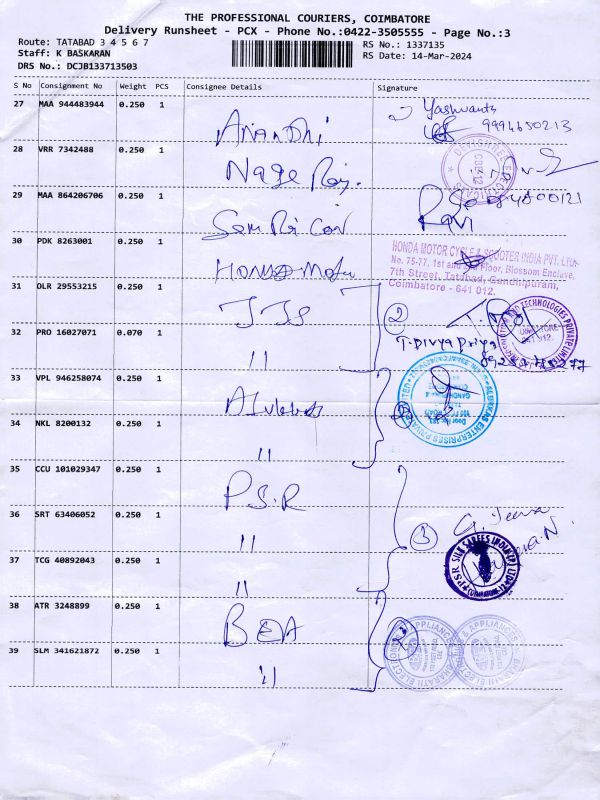 THE PROFESSIONAL COURIERS, COIMBATORE
Delivery Runsheet - PCX - Phone No.:0422-3505555 - Page No.:3
Route: TATABAD 3 4 5 6 7
RS No.: 1337135
Staff: K BASKARAN
RS Date: 14-Mar-2024
DRS No.: DCJB133713503
S No Consignment No Weight PCS Consignee Details Signature
27 MAA 944483944 0.250 1 Anandhi Yashwanth
9994650213
28 VRR 7342488 0.250 1 Nage Raj.
29 MAA 864206706 0.250 1 Ravi
30 PDK 8263001 0.250 1 Honda Motor
HONDA MOTOR CYCLE & SCOOTER INDIA PVT. LTD.
No. 75-77, 1st and Floor, Blossom Enclave,
7th Street, Tatabad, Gandhipuram,
Coimbatore - 641 012.
31 OLR 29553215 0.250 1 2
32 PRO 16027071 0.070 1 " T. Divya Priya
33 VPL 946258074 0.250 1
34 NKL 8200132 0.250 1 "
35 CCU 101029347 0.250 1 P.S.R
36 SRT 63406052 0.250 1 " 3 G. Jeeva
37 TCG 40892043 0.250 1 "
PSR SILK SAREES INDIA (P) LTD
38 ATR 3248899 0.250 1 BEA 2
39 SLM 341621872 0.250 1 "